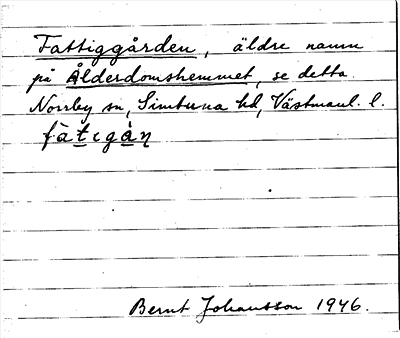 Fattiggården, äldre namn
på Ålderdomshemmet, se detta.
Norrby sn, Simtuna hd, Västmanl. l.
fàtɩgàṇ
Bernt Johansson 1946.